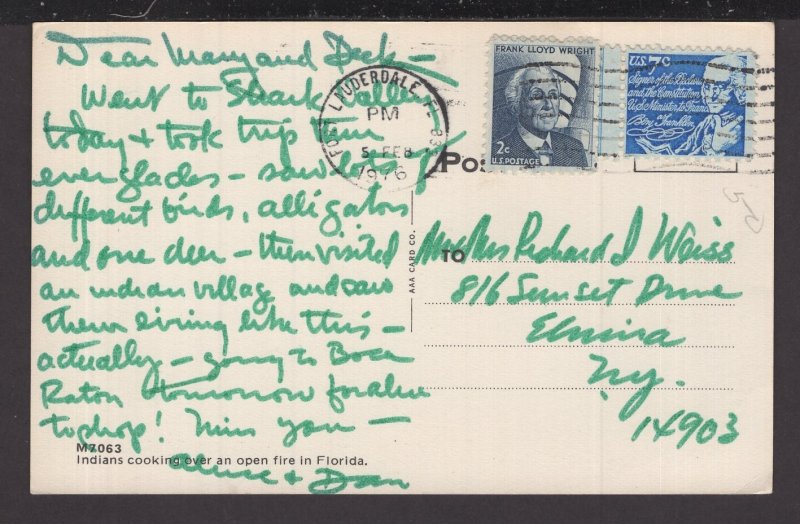 Dear Mary and Dick —
Went to Shark Valley
today + took trip thru
everglades — saw lots of
different birds, alligators
and one deer — then visited
an indian village and saw
them living like this —
actually — going to Boca
Raton tomorrow for
to shop! Miss you —
+ Dan
M7063
Indians cooking over an open fire in Florida.
AAA CARD CO.
FORT LAUDERDALE, FL
PM
5 FEB
1976
FRANK LLOYD WRIGHT
2c
U.S. POSTAGE
U.S. 7c
Signer of the
and the Constitution
U.S. Minister to France
Benj. Franklin
Pos
TO
Mr & Mrs Richard J Weiss
816 Sunset Drive
Elmira
N.Y.
14903